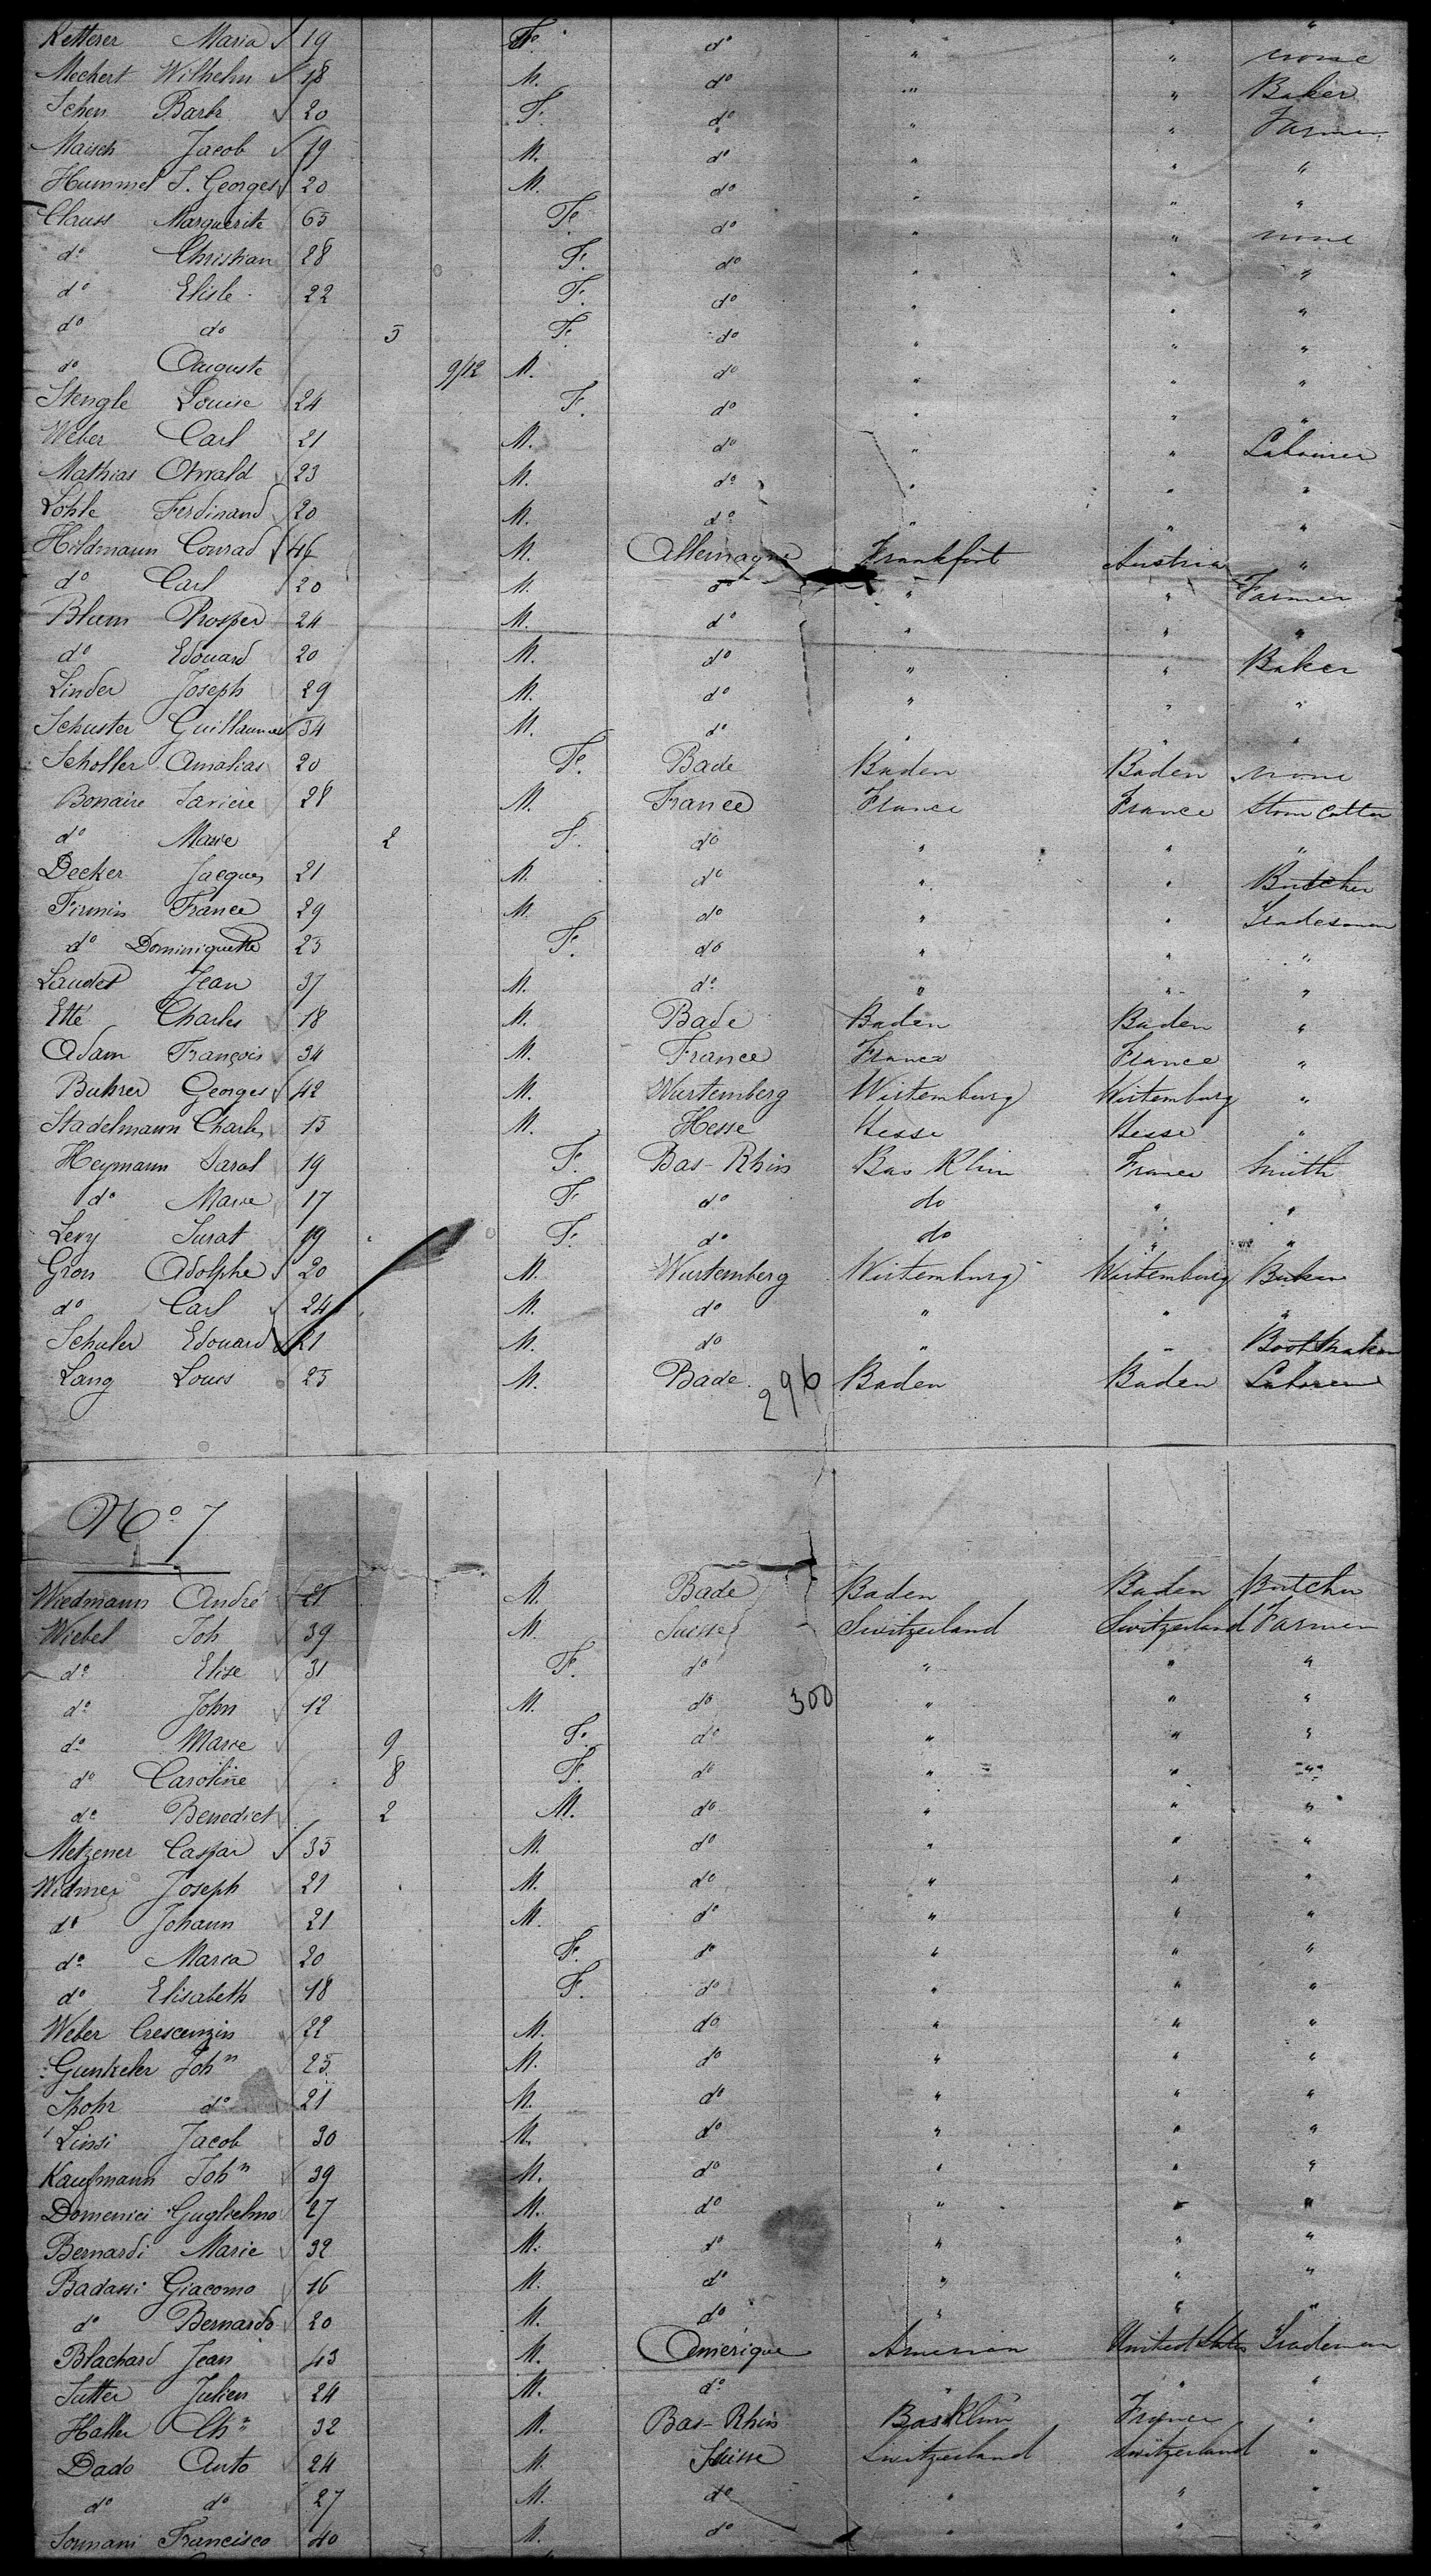 Ketterer Maria 19 F. do " " "
Meckert Wilhelm 18 M. do " " none
Schen Barbr 20 F. do " " Baker
Maisch Jacob 19 M. do " " Farmer
Hummel J. Georges 20 M. do " " "
Clauss Marguerite 65 F. do " " "
do Christian 28 F. do " " none
do Elisle 22 F. do " " "
do do 5 F. do " " "
do Auguste 9/12 M. do " " "
Stengle Louise 24 F. do " " "
Weber Carl 21 M. do " " "
Mathias Oswald 23 M. do " " Labourer
Lohle Ferdinand 20 M. do " " "
Hildmann Conrad 46 M. Allemagne Frankfort Austria "
do Carl 20 M. do " " Farmer
Blum Prosper 24 M. do " " "
do Edouard 20 M. do " " Baker
Linder Joseph 29 M. do " " "
Schuster Guillaume 34 M. do " " "
Scholler Amalias 20 F. Bade Baden Baden none
Bonaire 28 M. France France France Stone Cutter
do Marie 2 F. do " " "
Decker Jacques 21 M. do " " Butcher
Firmin France 29 M. do " " Tradesman
do Dominiquette 25 F. do " " "
Laudet Jean 37 M. do " " "
Etté Charles 18 M. Bade Baden Baden "
Adam François 34 M. France France France "
Buhrer Georges 42 M. Wurtemberg Wirtemburg Wirtemburg "
Stadelmann Charles 15 M. Hesse Hesse Hesse "
Heymann Saral 19 F. Bas-Rhin Bas Rhin France Smith
do Marie 17 F. do do " "
Levy Surat 19 F. do do " "
Gron Adolphe 20 M. Wurtemberg Wirtemburg Wirtemburg Baker
do Carl 24 M. do " " "
Schuler Edouard 21 M. do " " Boot Maker
Lang Louis 25 M. Bade 296 Baden Baden Laborer
No 7
Wiedmann André 21 M. Bade Baden Baden Butcher
Wiebel Joh 39 M. Suisse Switzerland Switzerland Farmer
do Elise 31 F. do " " "
do John 12 M. do 300 " " "
do Marie 9 F. do " " "
do Caroline 8 F. do " " "
do Benedict 2 M. do " " "
Metzener Caspar 35 M. do " " "
Widmer Joseph 21 M. do " " "
do Johann 21 M. do " " "
do Maria 20 F. do " " "
do Elisabeth 18 F. do " " "
Weber Crescenzin 22 M. do " " "
Gunkeler John 25 M. do " " "
Spohr do 21 M. do " " "
Linsi Jacob 30 M. do " " "
Kaufmann John 39 M. do " " "
Domenici Guglielmo 27 M. do " " "
Bernardi Marie 32 M. do " " "
Badassi Giacomo 16 M. do " " "
do Bernardo 20 M. do " " "
Blachard Jean 43 M. Amerique American United States Trademan
Sutter Julien 24 M. do " " "
Haller Chn 32 M. Bas-Rhin Bas Rhin France "
Dado Anto 24 M. Suisse Switzerland Switzerland "
do do 27 M. do " " "
Sormani Francisco 40 M. do " " "